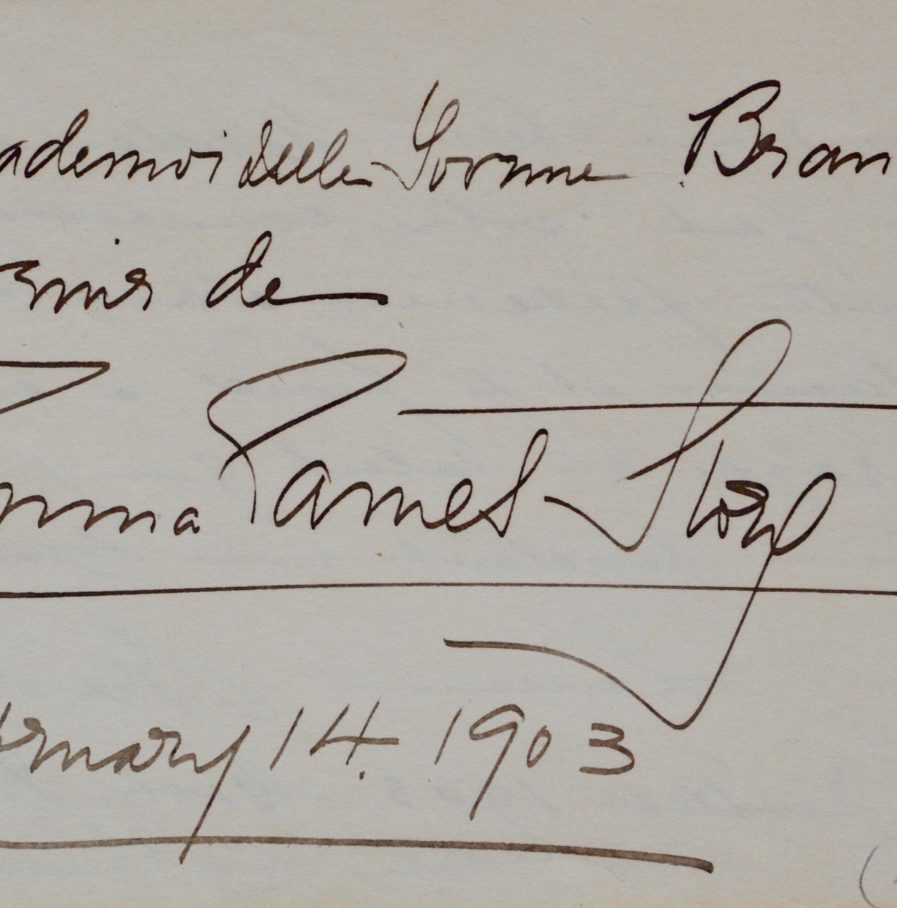 ademoiselle Yvonne Bran
enir de
mma Eames Story
bruary 14. 1903